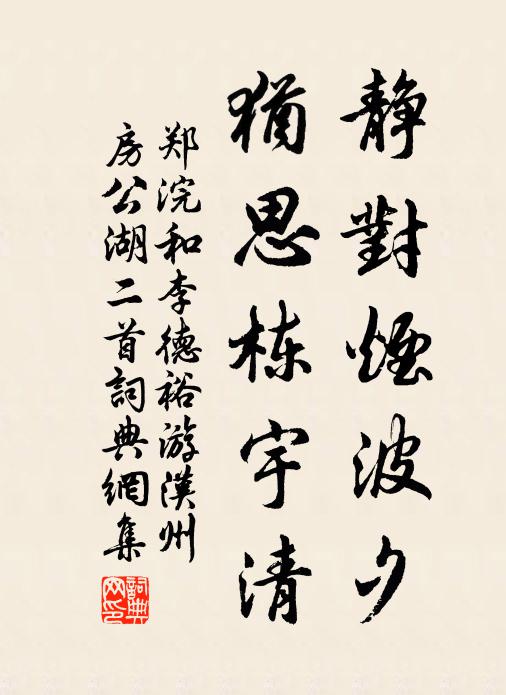 靜對煙波夕
猶思棟宇清
郑浣和李德裕游漢州
房公湖二首詞典網集
詞典
网印